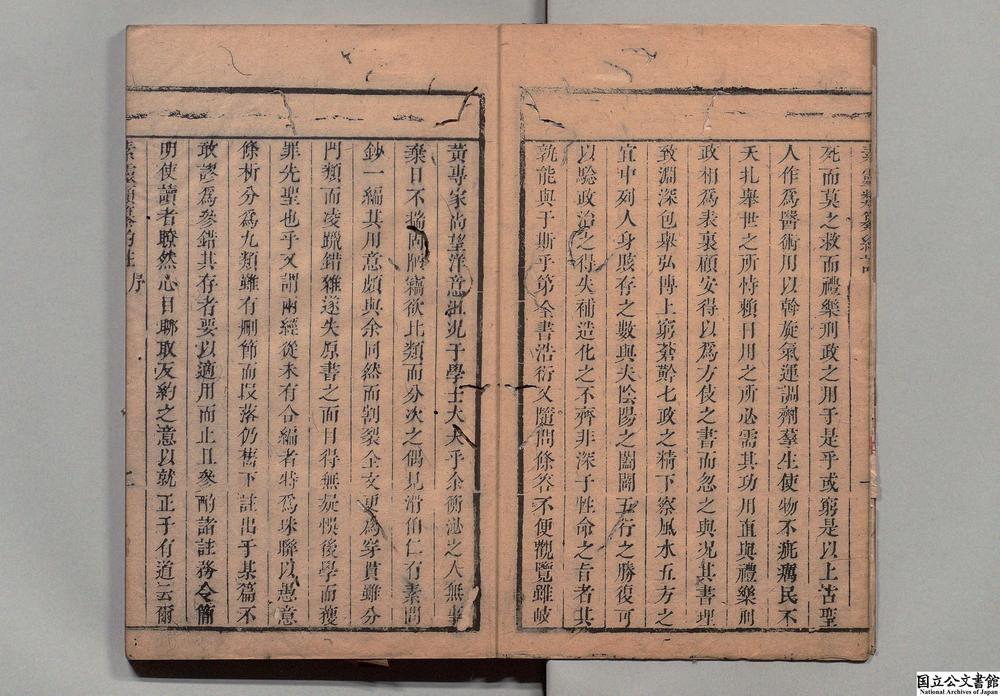 死而莫之救而禮樂刑政之用于是乎或窮是以上古聖
人作為醫術用以斡旋氣運調劑羣生使物不疵癘民不
夭扎舉世之所恃賴日用之所必需其功用直與禮樂刑
政相為表裏顧安得以為方伎之書而忽之與况其書理
致淵深包舉弘博上窮蒼齡七政之精下察風水五方之
宜中列人身賅存之數與夫陰陽之闔闢五行之勝復可
以驗政治之得失補造化之不齊非深于性命之旨者其
孰能與于斯乎第全書浩衍又隨問條答不便觀覽雖岐
黃專家尚望洋意沮况于學士大夫乎余衡泌之人無事
棄日不揣固陋竊欲比類而分次之偶見滑伯仁有素問
鈔一編其用意頗與余同然而割裂全文更為穿貫雖分
門類而凌躐錯雜遂失原書之面目得無疑悞後學而獲
罪先聖也乎又謂兩經從未有合編者特為珠聯以愚意
條析分為九類雖有刪節而段落仍舊下註出于某篇不
敢謬為參錯其存者要以適用而止且參酌諸註務令簡
明使讀者瞭然心目聊取反約之意以就正于有道云爾
素靈類纂約註 序 二
国立公文書館
National Archives of Japan